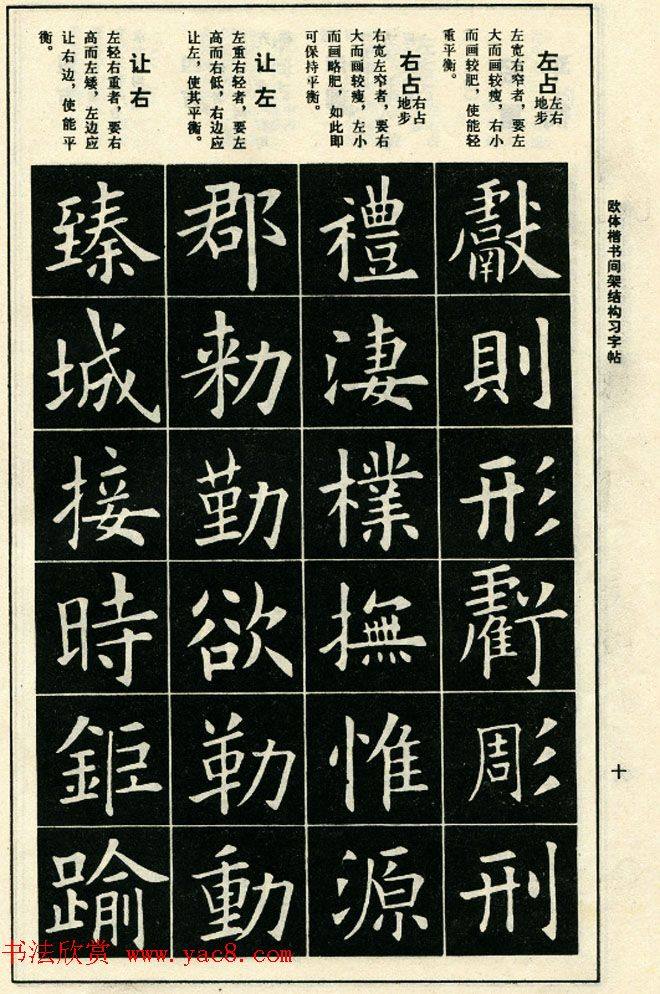 欧体楷书间架结构习字帖
十
左占
左右
地步
左宽右窄者，要左
大而画较瘦，右小
而画较肥，使能轻
重平衡。
右占
右占
地步
右宽左窄者，要右
大而画较瘦，左小
而画略肥，如此即
可保持平衡。
让左
左重右轻者，要左
高而右低，右边应
让左，使其平衡。
让右
左轻右重者，要右
高而左矮，左边应
让右边，使能平
衡。
獻則形虧彫刑
禮淒樸撫惟源
郡勑勤欲勒動
臻城接時鉅踰
书法欣赏 www.yac8.com